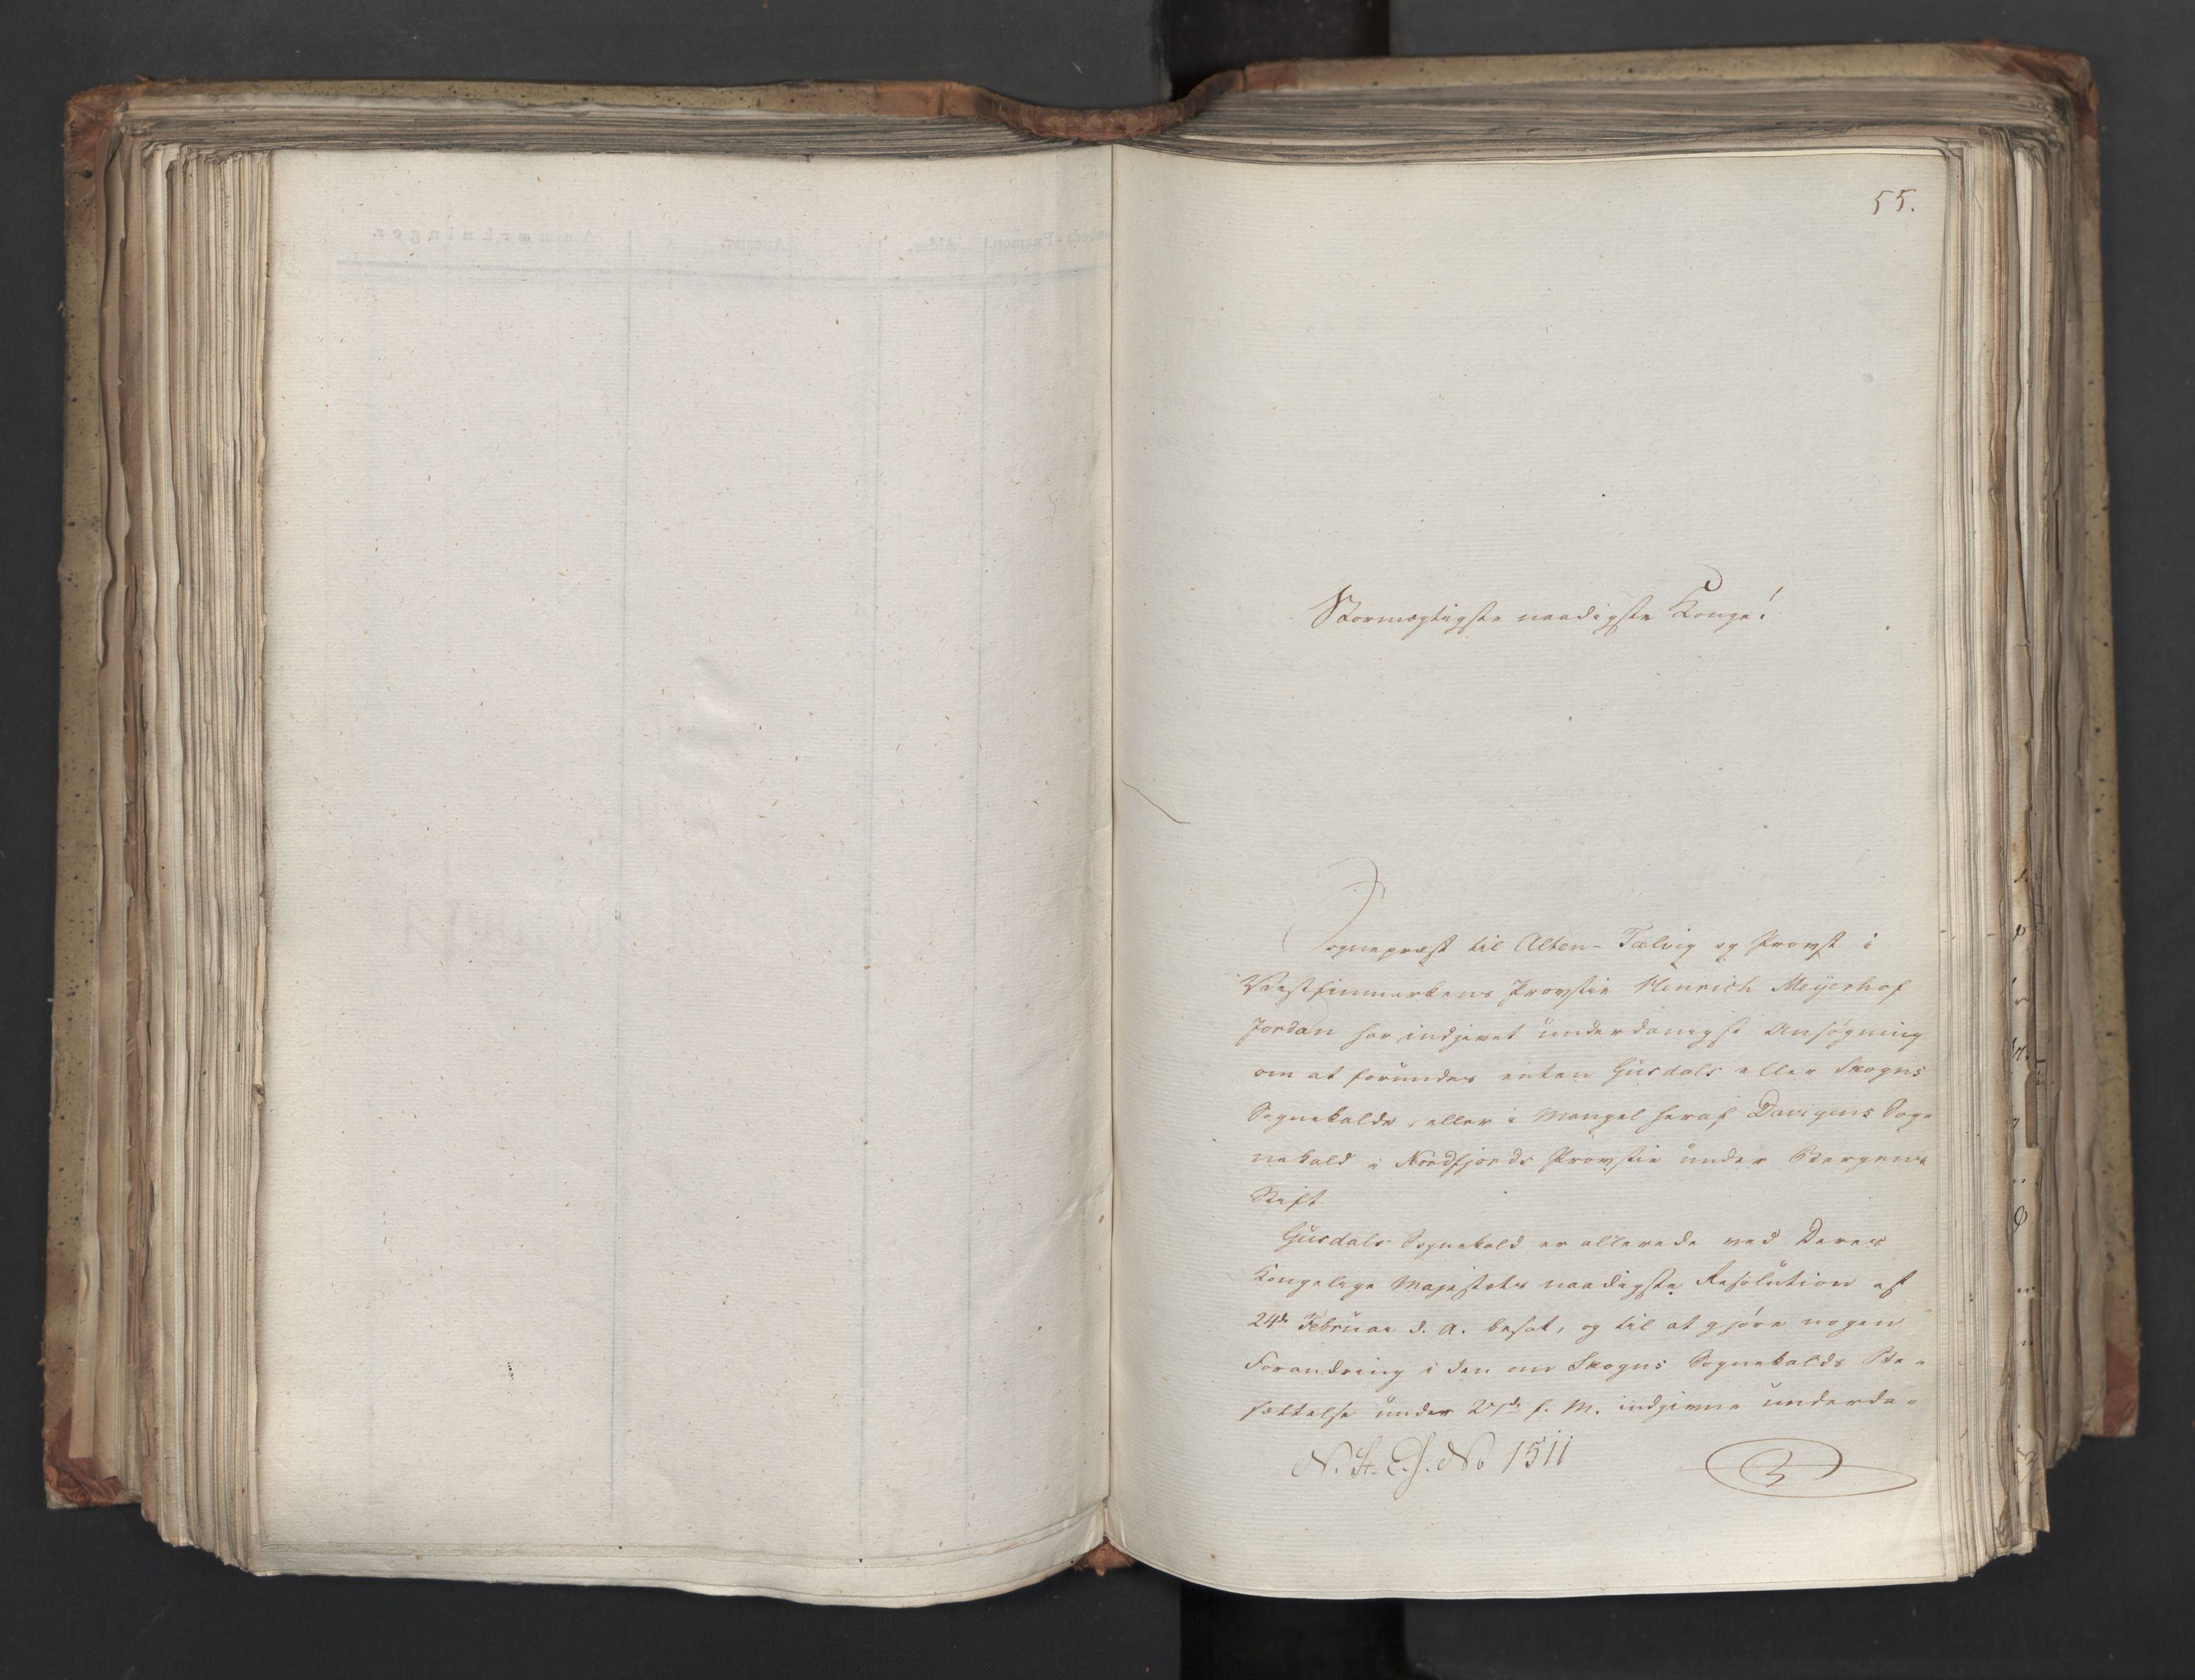 55.
Stormægtigste naadigste Konge!
Sognepræst til Alten-Talvig og Provst i
Vestfinmarkens Provstie Henrich Meÿerhof
Jordan har indgivet underdanigst Ansøgning
om at forundes enten Gusdals eller Skogns
Sognekalde, eller i Mangel heraf Davigens Sog-
nekald i Nordfjords Provstie under Bergens
Stift.
Gusdals Sognekald er allerede ved Deres
Kongelige Majestæts naadigste Resolution af
24de Februar d. A. besat, og til at gjøre nogen
Forandring i den om Skogns Sognekalds Be-
sættelse under 27de f. M. indgivne underda-
N. St. S. No 1511